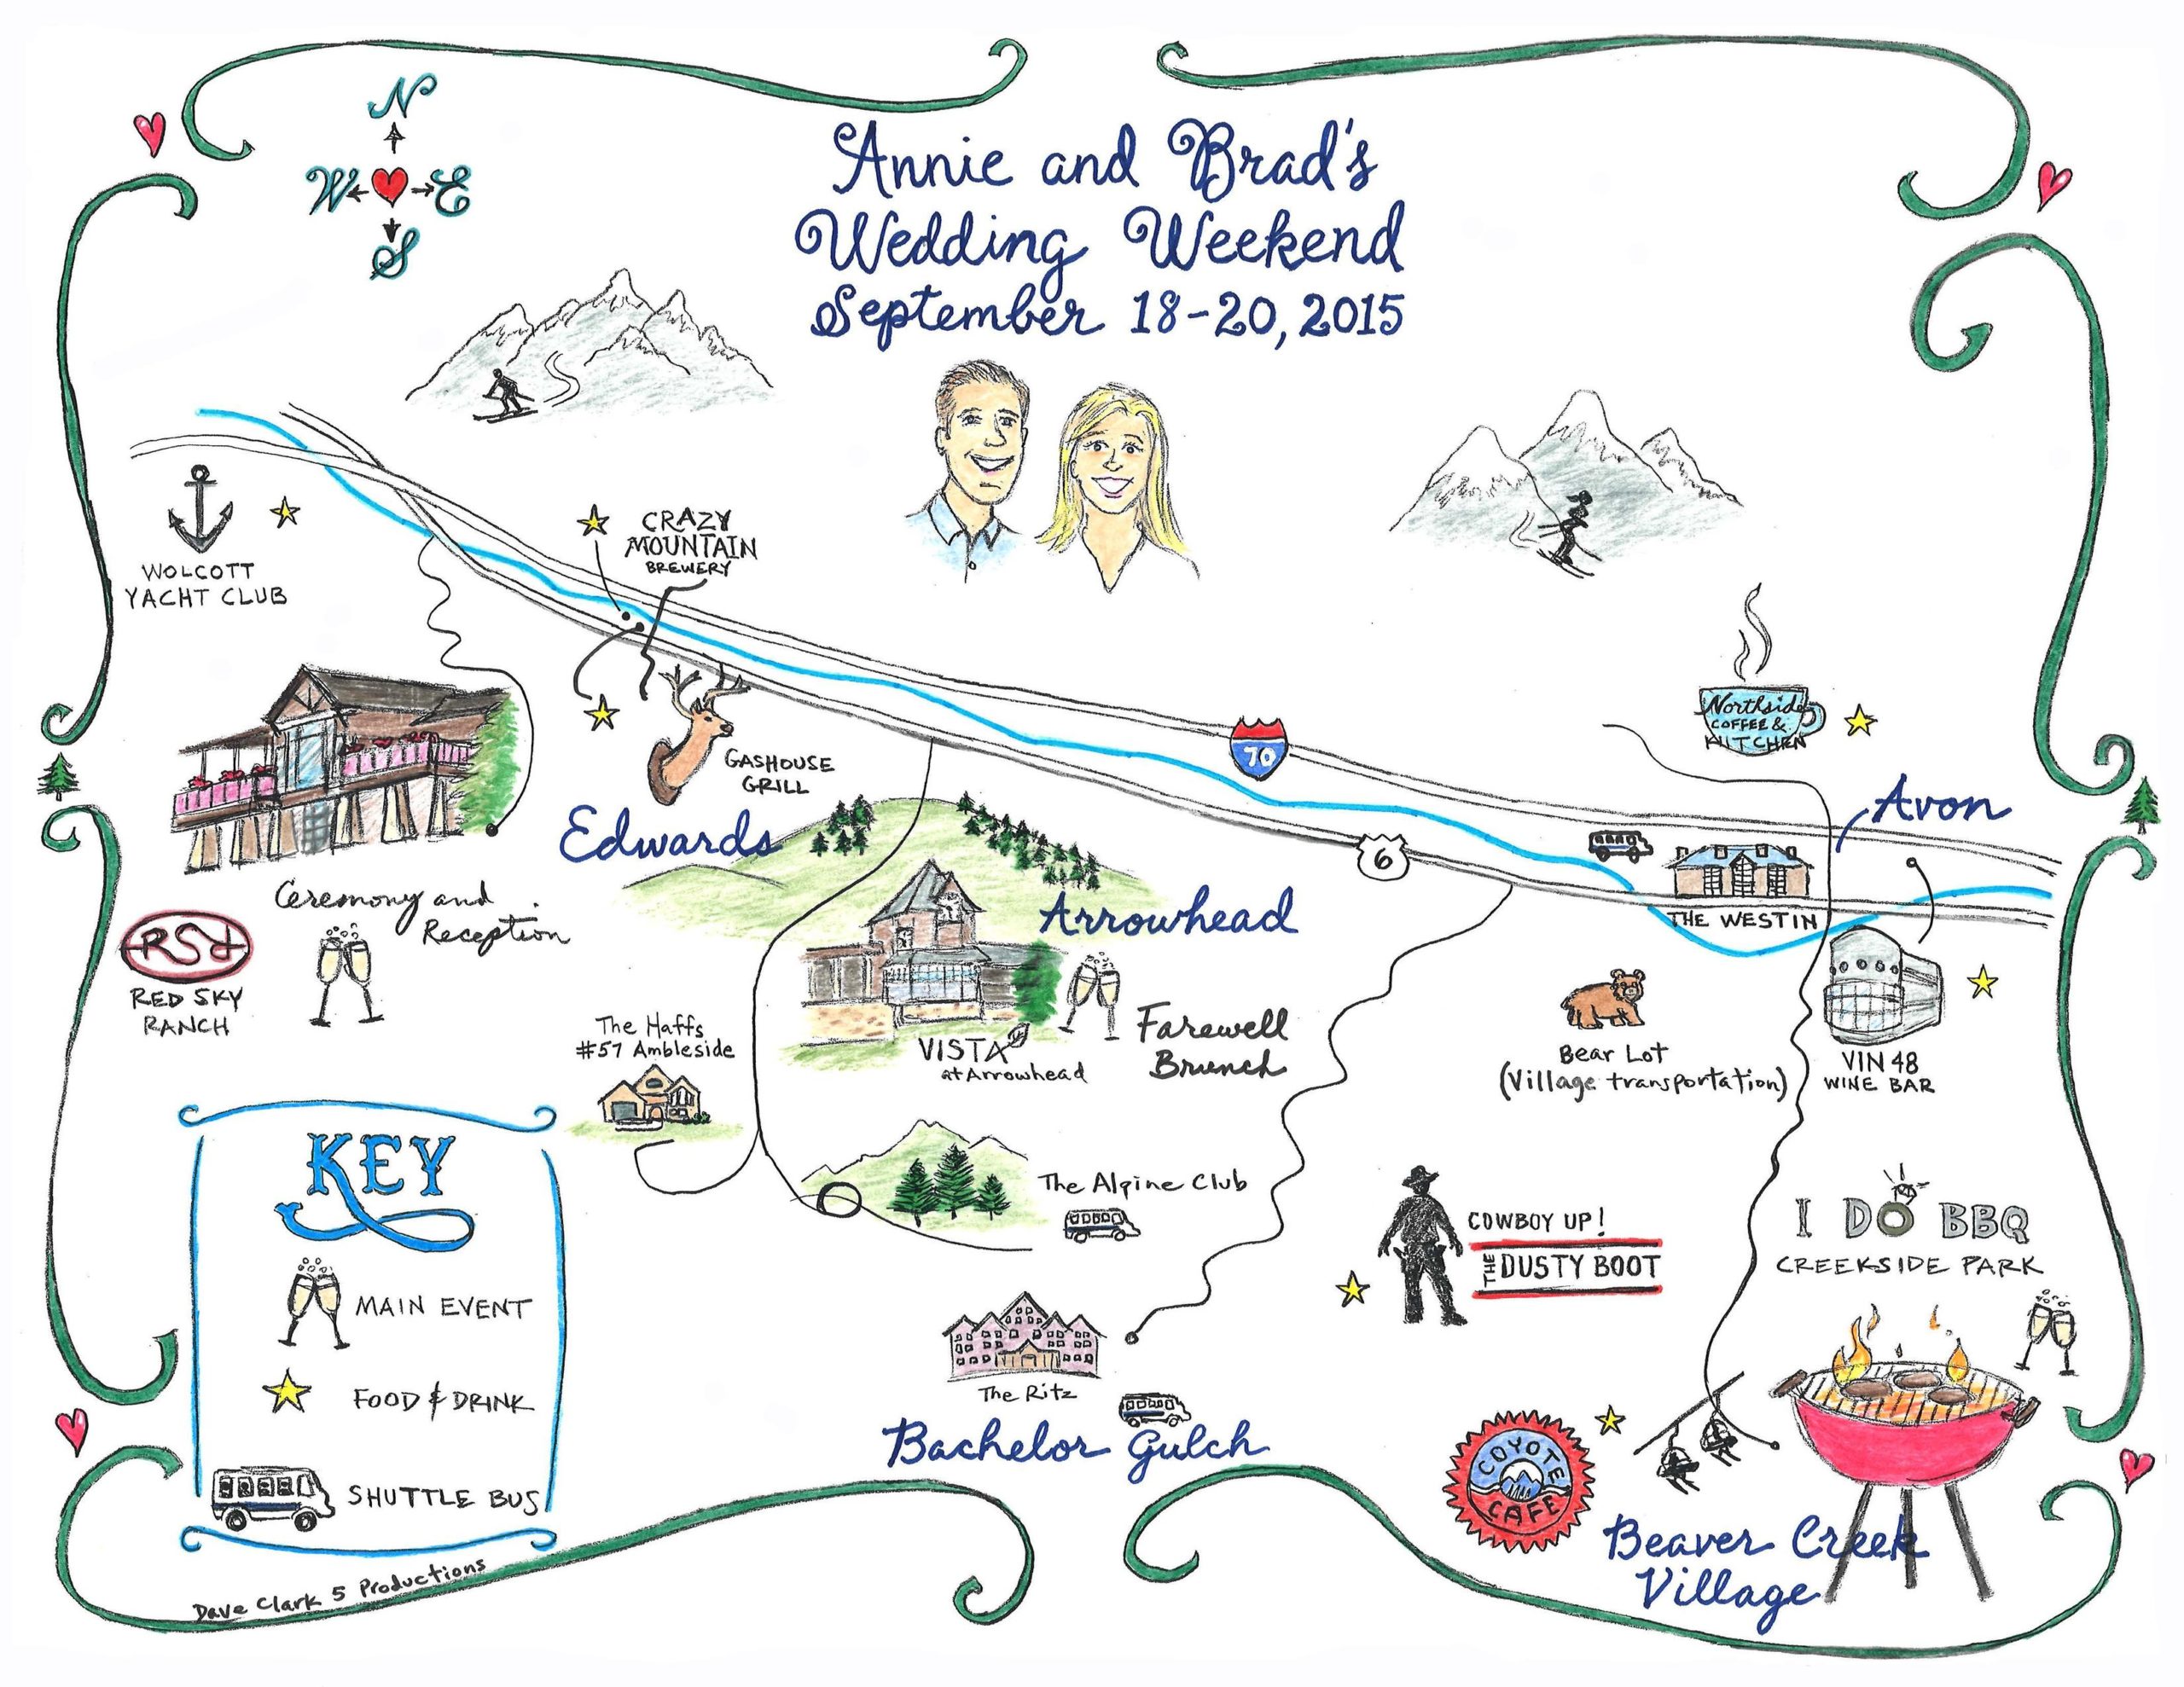 N
W E
S
Annie and Brad's
Wedding Weekend
September 18-20, 2015
WOLCOTT
YACHT CLUB
CRAZY
MOUNTAIN
BREWERY
GASHOUSE
GRILL
Edwards
70
6
Northside
COFFEE &
KITCHEN
Avon
THE WESTIN
Ceremony and
Reception
RSR
RED SKY
RANCH
Arrowhead
VISTA
at Arrowhead
Farewell
Brunch
The Haffs
#57 Ambleside
Bear Lot
(Village transportation)
VIN 48
WINE BAR
The Alpine Club
COWBOY UP!
THE DUSTY BOOT
I DO BBQ
CREEKSIDE PARK
The Ritz
Bachelor Gulch
COYOTE
CAFE
Beaver Creek
Village
KEY
MAIN EVENT
FOOD & DRINK
SHUTTLE BUS
Dave Clark 5 Productions